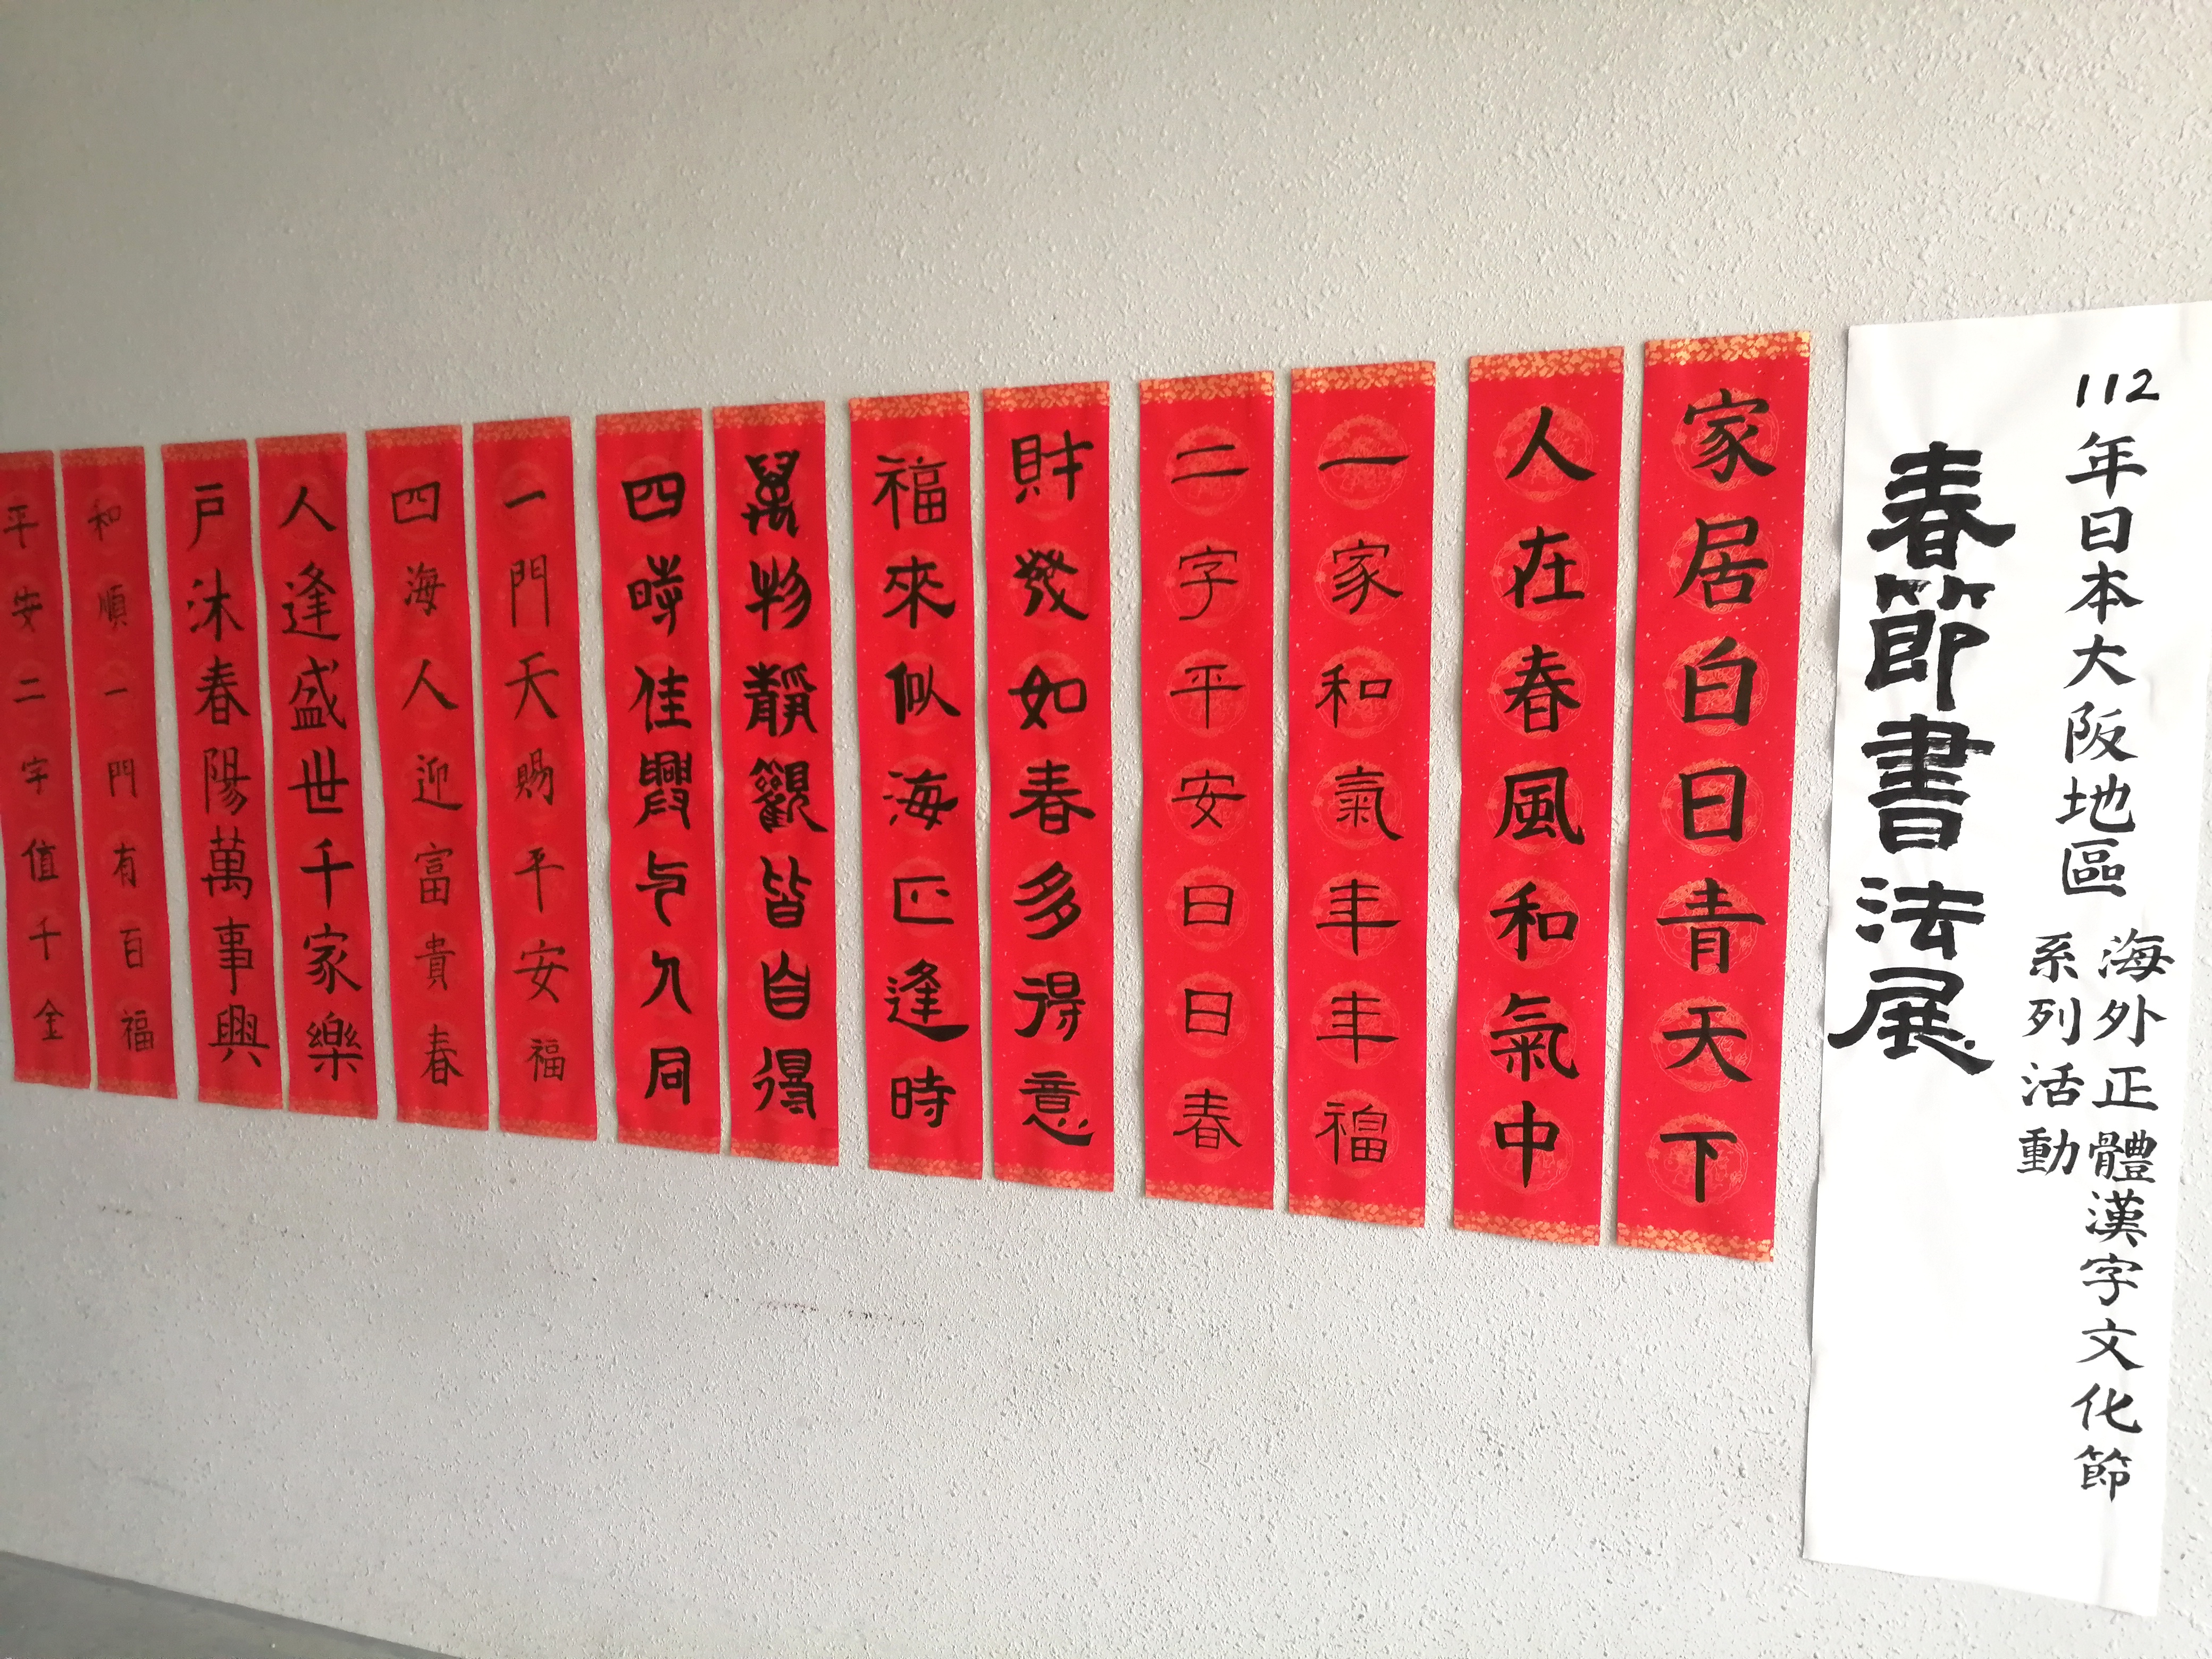 112年日本大阪地區
海外正體漢字文化節
系列活動
春節書法展
家居白日青天下
人在春風和氣中
一家和氣年年福
二字平安日日春
財發如春多得意
福來似海正逢時
萬物靜觀皆自得
四時佳興与人同
一門天賜平安福
四海人迎富貴春
人逢盛世千家樂
戶沐春陽萬事興
和順一門有百福
平安二字值千金